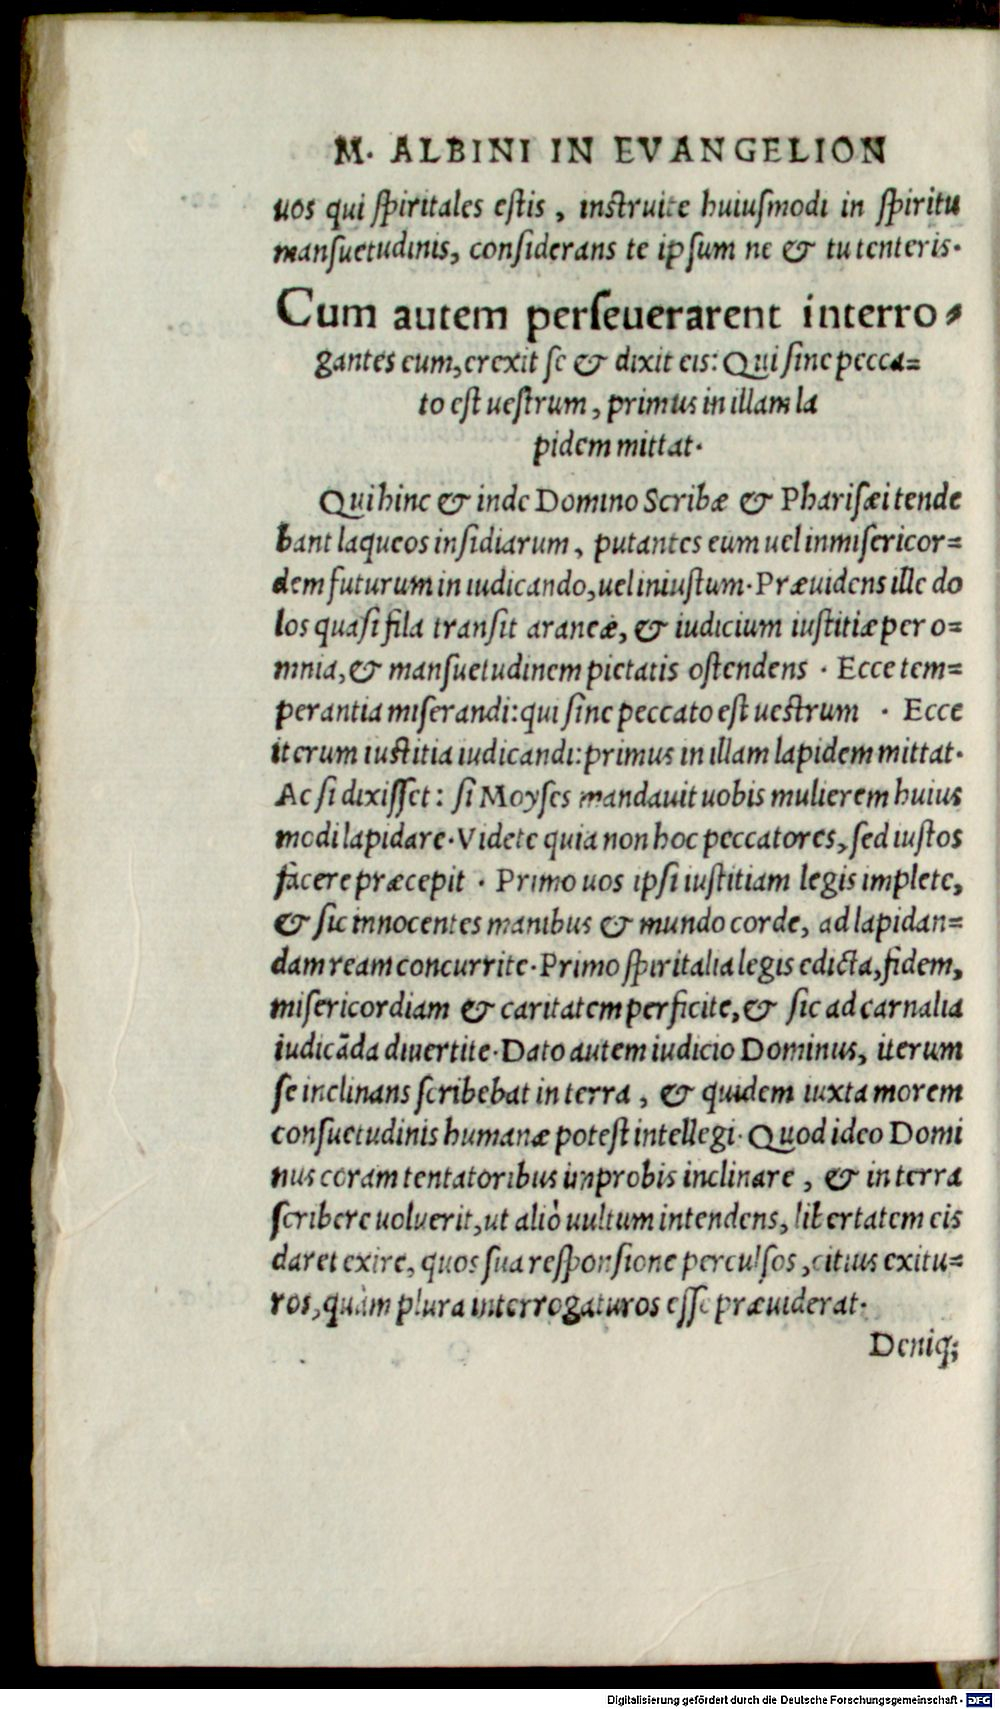 M. ALBINI IN EVANGELION
uos qui spiritales estis, instruite huiusmodi in spiritu
mansuetudinis, considerans te ipsum ne & tu tenteris.
Cum autem perseuerarent interro-
gantes eum, erexit se & dixit eis: Qui sine pecca=
to est uestrum, primus in illam la
pidem mittat.
Qui hinc & inde Domino Scribæ & Pharisæi tende
bant laqueos insidiarum, putantes eum uel inmisericor=
dem futurum in iudicando, uel iniustum. Præuidens ille do
los quasi fila transit araneæ, & iudicium iustitiæ per o=
mnia, & mansuetudinem pietatis ostendens. Ecce tem=
perantia miserandi: qui sine peccato est uestrum. Ecce
iterum iustitia iudicandi: primus in illam lapidem mittat.
Ac si dixisset: si Moyses mandauit uobis mulierem huius
modi lapidare. Videte quia non hoc peccatores, sed iustos
facere præcepit. Primo uos ipsi iustitiam legis implete,
& sic innocentes manibus & mundo corde, ad lapidan=
dam ream concurrite. Primo spiritalia legis edicta, fidem,
misericordiam & caritatem perficite, & sic ad carnalia
iudicãda diuertite. Dato autem iudicio Dominus, iterum
se inclinans scribebat in terra, & quidem iuxta morem
consuetudinis humanæ potest intellegi. Quod ideo Domi
nus coram tentatoribus improbis inclinare, & in terra
scribere uoluerit, ut aliò uultum intendens, libertatem eis
daret exire, quos sua responsione perculsos, citius exitu=
ros, quàm plura interrogaturos esse præuiderat.
Deniq;
Digitalisierung gefördert durch die Deutsche Forschungsgemeinschaft - DFG